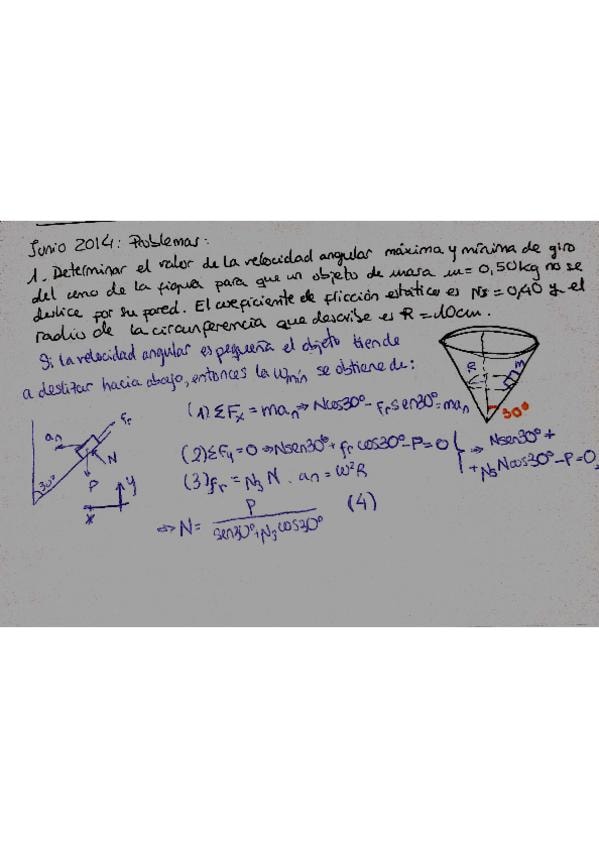 Junio 2014: Problemas:
1. Determinar el valor de la velocidad angular máxima y mínima de giro
del cono de la figura para que un objeto de masa m = 0,50kg no se
deslice por su pared. El coeficiente de fricción estático es Ns = 0,40 y el
radio de la circunferencia que describe es R = 10cm.
Si la velocidad angular es pequeña el objeto tiende
a deslizar hacia abajo, entonces la ωmín se obtiene de:
R
m
30º
(1) ΣFx = man ⇒ Ncos30º - frsen30º = man
(2) ΣFy = 0 ⇒ Nsen30º + fr cos30º - P = 0 } ⇒ Nsen30º +
+ NsNcos30º - P = 0
(3) fr = Ns N . an = ω²R
⇒ N = P / (sen30º + Ns cos30º) (4)
fr
an
N
P
30º
y
x